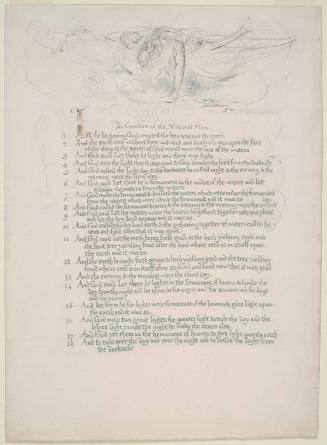 The Creation of the Natural Man
1 In the beginning God created the heavens and the earth
2 And the earth was without form and void and darkness was upon the face
of the deep & the spirit of God moved upon the face of the waters
3 And God said Let there be light and there was light
4 And God saw the light that it was good & God divided the light from the darkness
5 And God called the light day & the darkness he called night & the evening & the
morning were the first day
6 And God said Let there be a firmament in the midst of the waters and let
it divide the waters from the waters
7 And God made the firmament & divided the waters which were under the firmament
from the waters which were above the firmament and it was so
8 And God called the firmament heaven & the evening & the morning were the second day
9 And God said Let the waters under the heaven be gathered together unto one place
and let the dry land appear and it was so
10 And God called the dry land earth & the gathering together of waters called he
seas and God saw that it was good
11 And God said Let the earth bring forth grass & the herb yielding seed and
the fruit tree yielding fruit after his kind whose seed is in itself upon
the earth and it was so
12 And the earth brought forth grass & herb yielding seed and the tree yielding
fruit whose seed is in itself after his kind and God saw that it was good
13 And the evening & the morning were the third day
14 And God said Let there be lights in the firmament of heaven to divide the
day from the night and let them be for signs and for seasons and for days
and for years
15 And let them be for lights in the firmament of the heaven to give light upon
the earth and it was so
16 And God made two great lights the greater light to rule the day and the
lesser light to rule the night he made the stars also
17 And God set them in the firmament of heaven to give light upon the earth
18 And to rule over the day and over the night and to divide the light from
the darkness